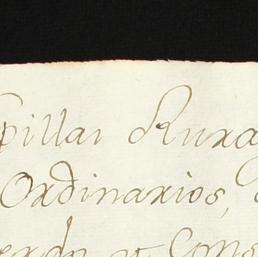 pillas Rura
Ordinarios,
erdo y Cons